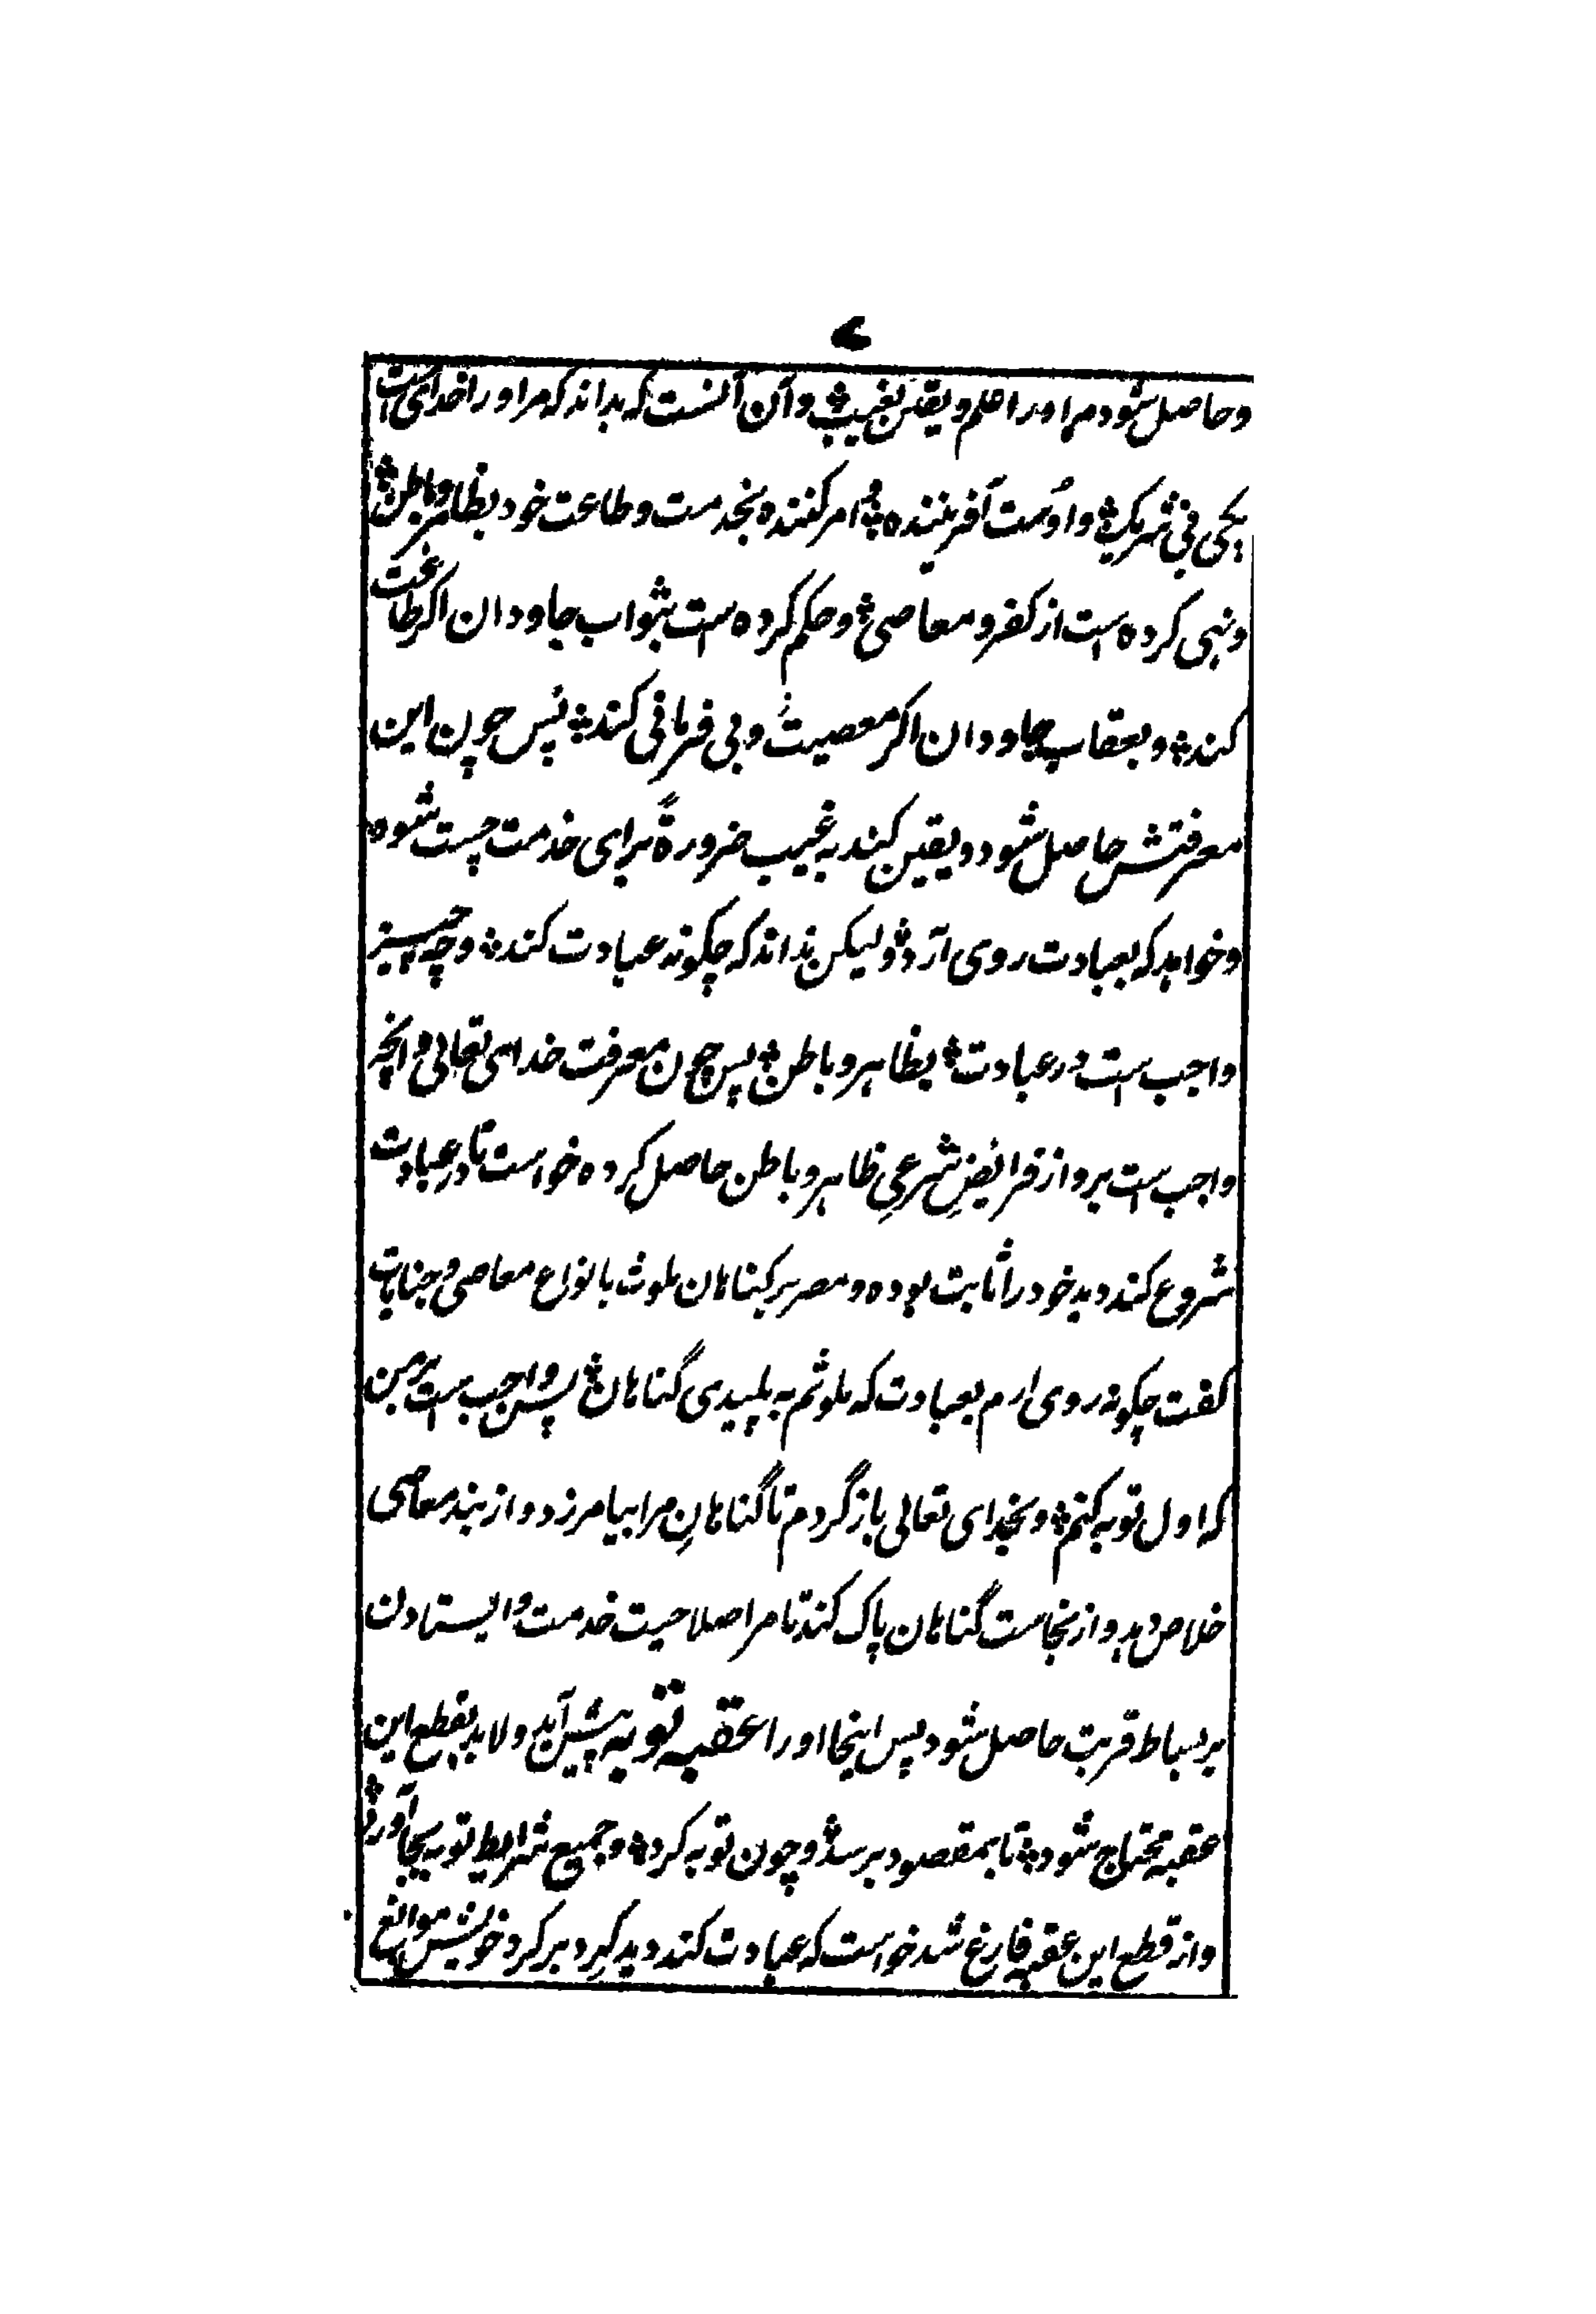 وحاصل شود مراورا علم و یقین بغیب ؞ و آن آنست که بداند که مراورا خدای است
یکی بی شریک ؞ و اوست آفریننده ؞ امر کننده بخدمت و طاعت خود بظاهر و باطن ؞
و نهی کرده است از کفر و معاصی ؞ و حکم کرده است بثواب جاودان اکر طاعت
کند ؞ و بعقاب جاودان اکر معصیت و بی فرمانی کند ؞ پس چون این
معرفتش حاصل شود و یقین کند به غیب ضرورةً برای خدمت چست شود
و خواهد که بعبادت روی آرد ؞ ولیکن نداند که چکونه عبادت کند ؞ و چه چیز
واجب است در عبادت ؞ بظاهر و باطن ؞ پس چون معرفت خدای تعالی و آنچه
واجب است برو از فرایضِ شرعیِ ظاهر و باطن حاصل کرده خواست تا در عبادت
شروع کند دید خود را ثابت بوده و مصر بر کناهان ملوث بانواع معاصی و جنایات
کفت چکونه روی ارم بعبادت که ملوثم به پلیدی گناهان ؞ پس واجب است بر من
که اول توبه کنم ؞ و بخدای تعالی باز گردم تا گناهانِ مرا بیامرزد و از بند معاصی
خلاص دهد و از نجاست گناهان پاک کند تا مرا صلاحیت خدمت و ایستادن
بر بساط قربت حاصل شود پس اینجا اورا عقبه توبه پیش آید و لابد بقطع این
عقبه محتاج شود ؞ تا بمقصود برسد ؞ و چون توبه کرد ؞ و جمیع شرایط توبه بجا آورد ؞
و از قطع این عقبه فارغ شد خواست که عبادت کند دید کرد بر کرد خویش موانع